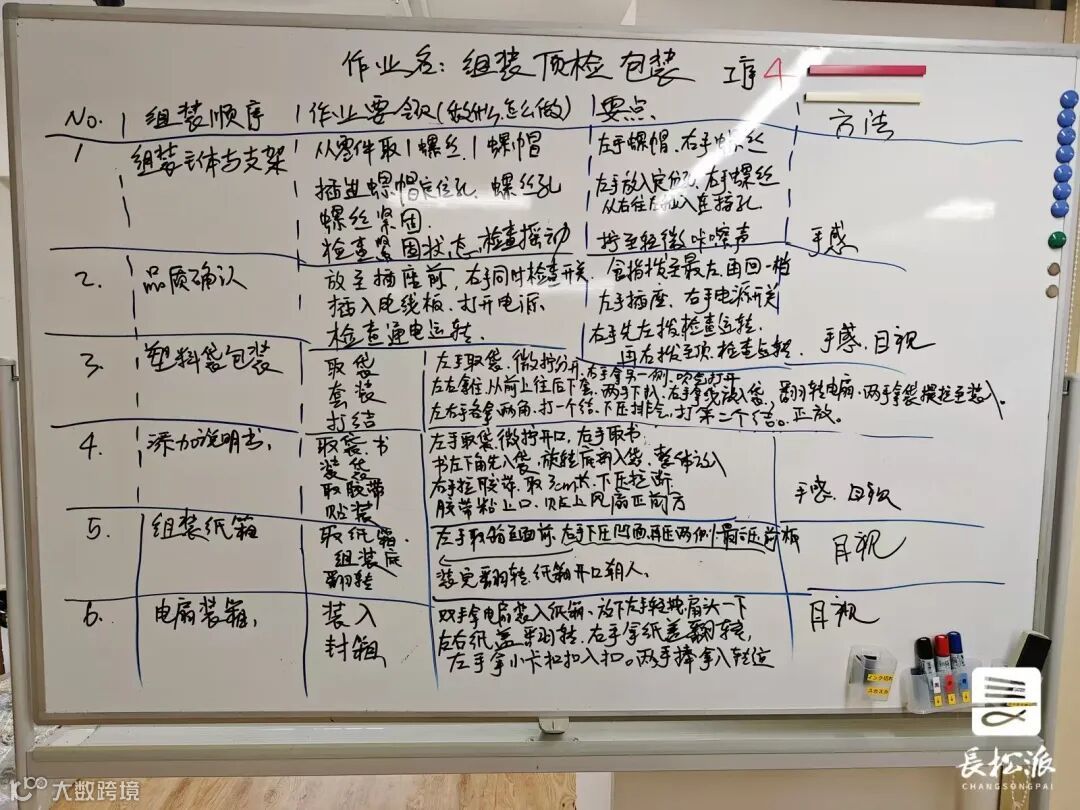 作业名：组装顶检包装 工序4
No. 组装顺序 作业要领(做什么怎么做) 要点 方法
1 组装主体与支架 从零件取1螺丝.1螺帽 左手螺帽.右手螺丝
插进螺帽定位孔.螺丝孔 左手放入定位孔.右手螺丝
从右往左插入连接孔
螺丝紧固.
检查紧固状态.检查摇动 拧至轻微咔嚓声 手感
2. 品质确认 放至插座前,右手同时检查开关. 食指拨至最左.再回一档
插入电线板.打开电源. 左手插座.右手电源开关
检查通电运转. 右手先左拨.检查运转.
再左拨至顶.检查运转. 手感.目视
3. 塑料袋包装 取袋 左手取袋.微拧分开.右手拿另一侧.吹气打开
套装 左右拿住.从前上往后下套.两手下扒.左手拿线放入袋.翻转电扇.两手拿袋摆拉至装入。
打结 左右手各拿两角.打一个结.下压排气.打第二个结。正放。
4. 添加说明书, 取袋.书 左手取袋.微拧开口,右手取书.
装袋 书左下角先入袋,旋转底部入袋.整体放入
取胶带 右手拉胶带.取3cm长.下压拉断
贴装 胶带粘上口.贴左上风扇正前方 手感.目视
5. 组装纸箱 取纸箱. 左手取箱至面前.右手下压凹面.再压两侧.最后压前板 目视
组装底
翻转 装完翻转.纸箱开口朝人.
6. 电扇装箱, 装入 双手拿电扇装入纸箱.放下左手轻抛扇头一下 目视
封箱 左右纸盖翻转.右手拿纸盖翻转,
左手拿小卡扣扣入扣。两手捧拿入转位
長松派
CHANGSONGPAI
大数跨境